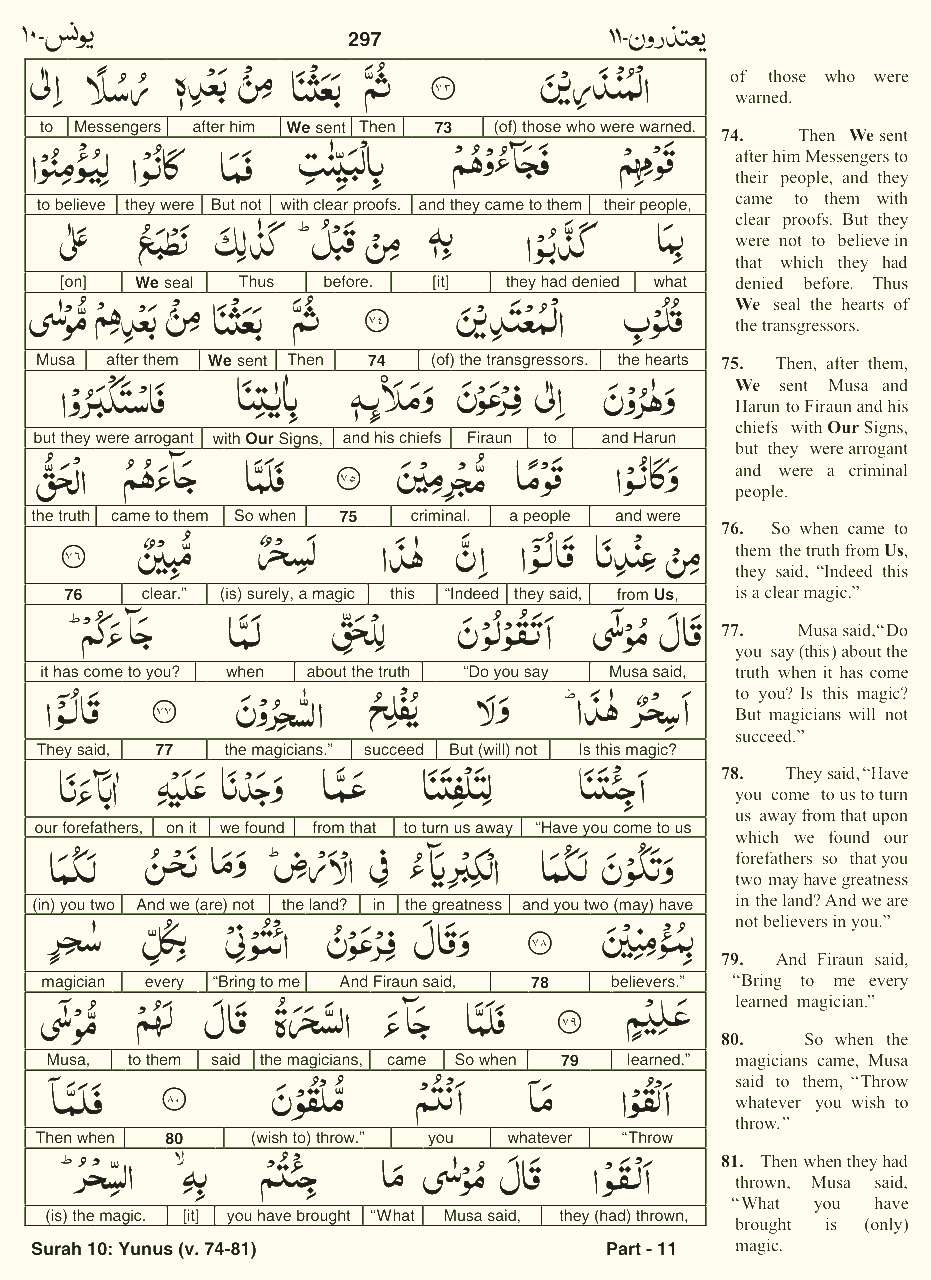 يونس-١٠ 297 يعتذرون-١١
الْمُنْذَرِيْنَ ٧٣ ثُمَّ بَعَثْنَا مِنْۢ بَعْدِهٖ رُسُلًا اِلٰى
(of) those who were warned. 73 Then We sent after him Messengers to
قَوْمِهِمْ فَجَآءُوْهُمْ بِالْبَيِّنٰتِ فَمَا كَانُوْا لِيُؤْمِنُوْا
their people, and they came to them with clear proofs. But not they were to believe
بِمَا كَذَّبُوْا بِهٖ مِنْ قَبْلُ ؕ كَذٰلِكَ نَطْبَعُ عَلٰى
what they had denied [it] before. Thus We seal [on]
قُلُوْبِ الْمُعْتَدِيْنَ ٧٤ ثُمَّ بَعَثْنَا مِنْۢ بَعْدِهِمْ مُّوْسٰى
the hearts (of) the transgressors. 74 Then We sent after them Musa
وَهٰرُوْنَ اِلٰى فِرْعَوْنَ وَمَلَا۟ئِهٖ بِاٰيٰتِنَا فَاسْتَكْبَرُوْا
and Harun to Firaun and his chiefs with Our Signs, but they were arrogant
وَكَانُوْا قَوْمًا مُّجْرِمِيْنَ ٧٥ فَلَمَّا جَآءَهُمُ الْحَقُّ
and were a people criminal. 75 So when came to them the truth
مِنْ عِنْدِنَا قَالُوْٓا اِنَّ هٰذَا لَسِحْرٌ مُّبِيْنٌ ٧٦
from Us, they said, “Indeed this (is) surely, a magic clear.” 76
قَالَ مُوْسٰٓى اَتَقُوْلُوْنَ لِلْحَقِّ لَمَّا جَآءَكُمْ ؕ
Musa said, “Do you say about the truth when it has come to you?
اَسِحْرٌ هٰذَا ؕ وَلَا يُفْلِحُ السّٰحِرُوْنَ ٧٧ قَالُوْٓا
Is this magic? But (will) not succeed the magicians.” 77 They said,
اَجِئْتَنَا لِتَلْفِتَنَا عَمَّا وَجَدْنَا عَلَيْهِ اٰبَآءَنَا
“Have you come to us to turn us away from that we found on it our forefathers,
وَتَكُوْنَ لَكُمَا الْكِبْرِيَآءُ فِى الْاَرْضِ ؕ وَمَا نَحْنُ لَكُمَا
and you two (may) have the greatness in the land? And we (are) not (in) you two
بِمُؤْمِنِيْنَ ٧٨ وَقَالَ فِرْعَوْنُ ائْتُوْنِىْ بِكُلِّ سٰحِرٍ
believers.” 78 And Firaun said, “Bring to me every magician
عَلِيْمٍ ٧٩ فَلَمَّا جَآءَ السَّحَرَةُ قَالَ لَهُمْ مُّوْسٰٓى
learned.” 79 So when came the magicians, said to them Musa,
اَلْقُوْا مَآ اَنْتُمْ مُّلْقُوْنَ ٨٠ فَلَمَّآ
“Throw whatever you (wish to) throw.” 80 Then when
اَلْقَوْا قَالَ مُوْسٰى مَا جِئْتُمْ بِهِ ۙ السِّحْرُ ؕ
they (had) thrown, Musa said, “What you have brought [it] (is) the magic.
of those who were
warned.
74. Then We sent
after him Messengers to
their people, and they
came to them with
clear proofs. But they
were not to believe in
that which they had
denied before. Thus
We seal the hearts of
the transgressors.
75. Then, after them,
We sent Musa and
Harun to Firaun and his
chiefs with Our Signs,
but they were arrogant
and were a criminal
people.
76. So when came to
them the truth from Us,
they said, “Indeed this
is a clear magic.”
77. Musa said, “Do
you say (this) about the
truth when it has come
to you? Is this magic?
But magicians will not
succeed.”
78. They said, “Have
you come to us to turn
us away from that upon
which we found our
forefathers so that you
two may have greatness
in the land? And we are
not believers in you.”
79. And Firaun said,
“Bring to me every
learned magician.”
80. So when the
magicians came, Musa
said to them, “Throw
whatever you wish to
throw.”
81. Then when they had
thrown, Musa said,
“What you have
brought is (only)
magic.
Surah 10: Yunus (v. 74-81) Part - 11